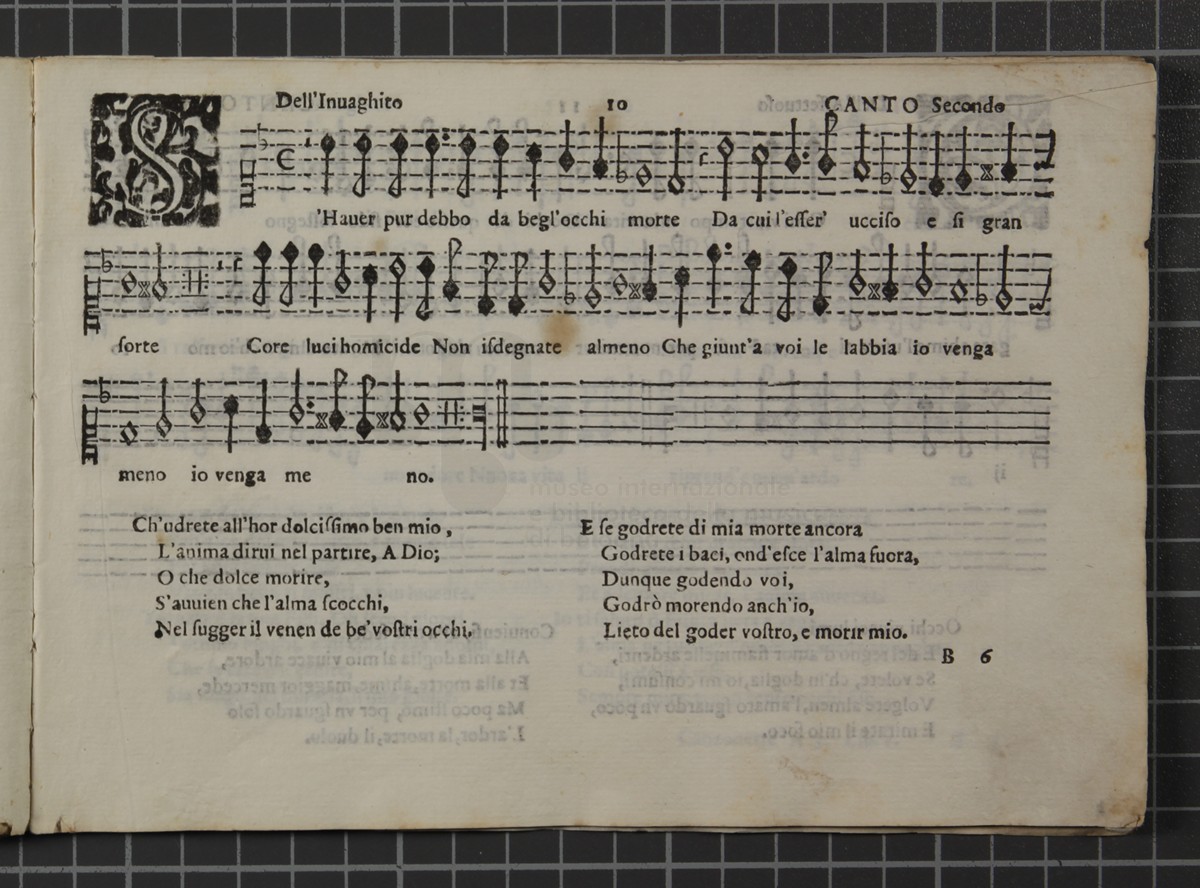 Dell'Inuaghito 10 CANTO Secondo
S'Hauer pur debbo da begl'occhi morte Da cui l'esser' ucciso e si gran
sorte Core luci homicide Non isdegnate almeno Che giunt'a voi le labbia io venga
meno io venga me no.
Ch'udrete all'hor dolcissimo ben mio,
L'anima dirui nel partire, A Dio;
O che dolce morire,
S'auuien che l'alma scocchi,
Nel sugger il venen de be' vostri occhi.
E se godrete di mia morte ancora
Godrete i baci, ond'esce l'alma fuora,
Dunque godendo voi,
Godrò morendo anch'io,
Lieto del goder vostro, e morir mio.
B 6
museo internazionale